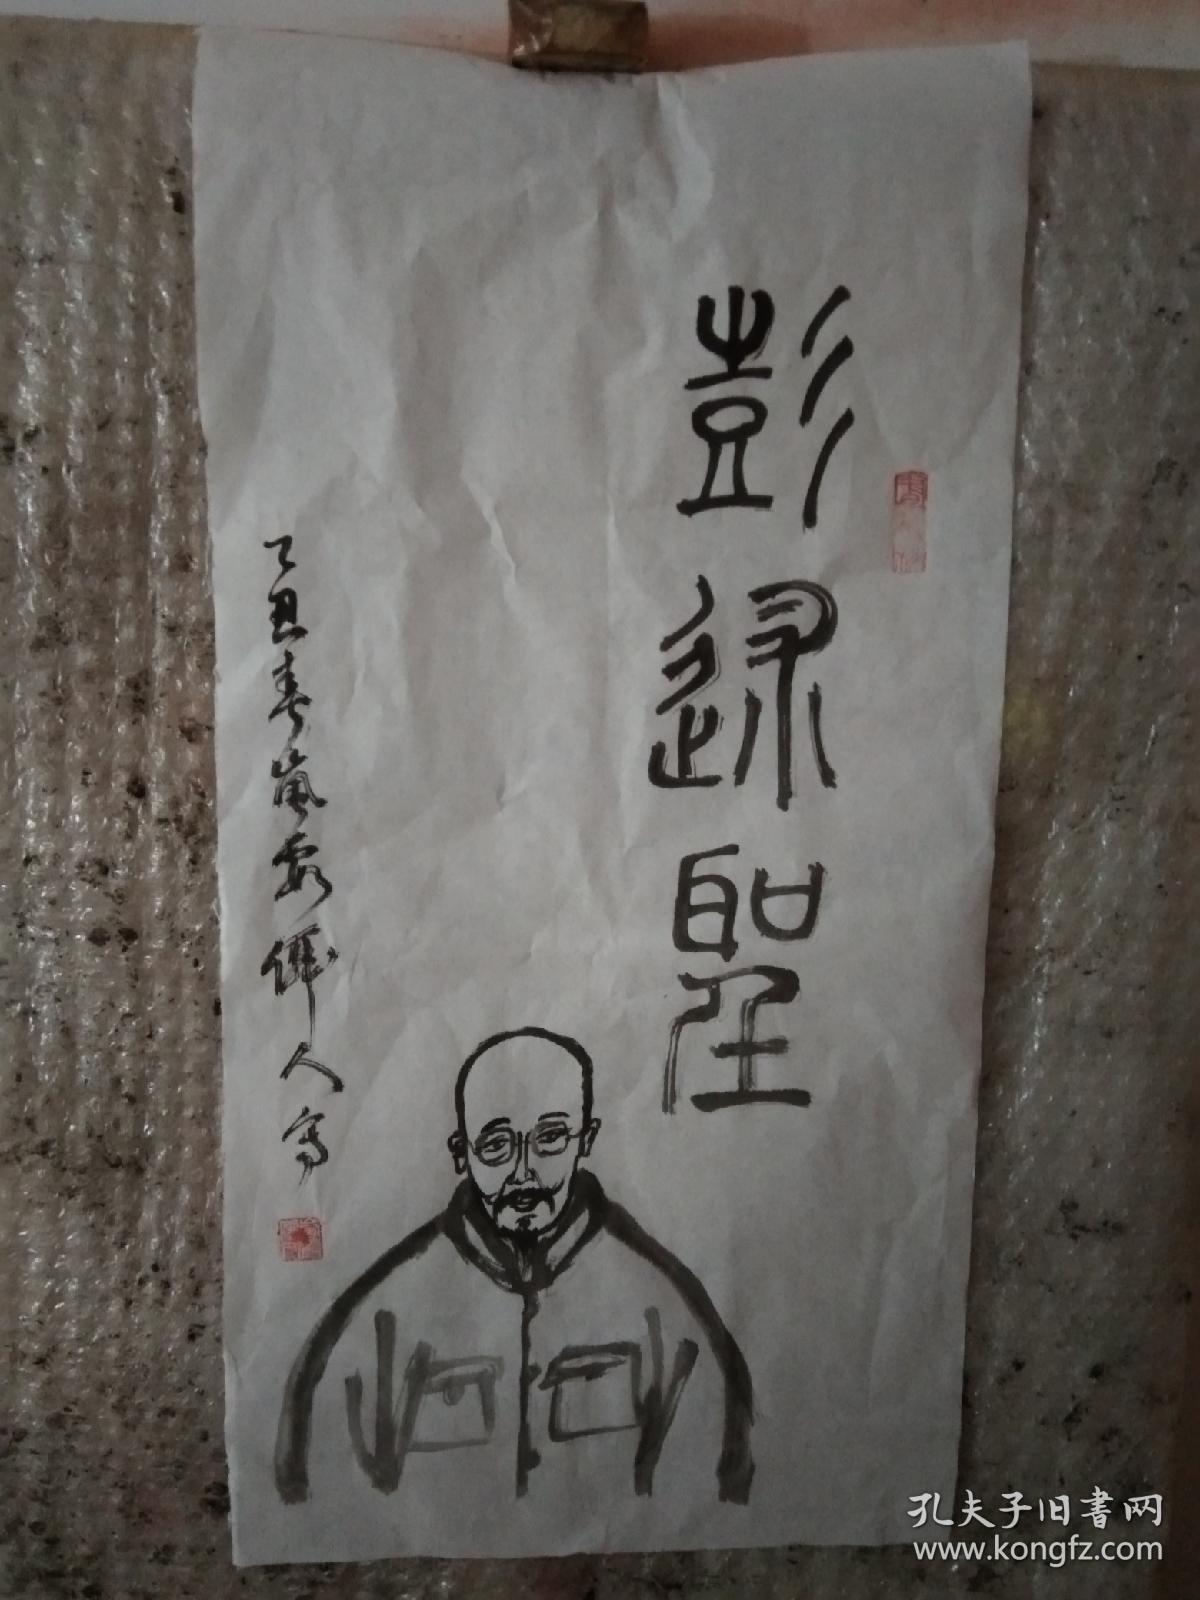 彭逯聖
乙丑春嵐
人寫
孔夫子旧書网
www.kongfz.com